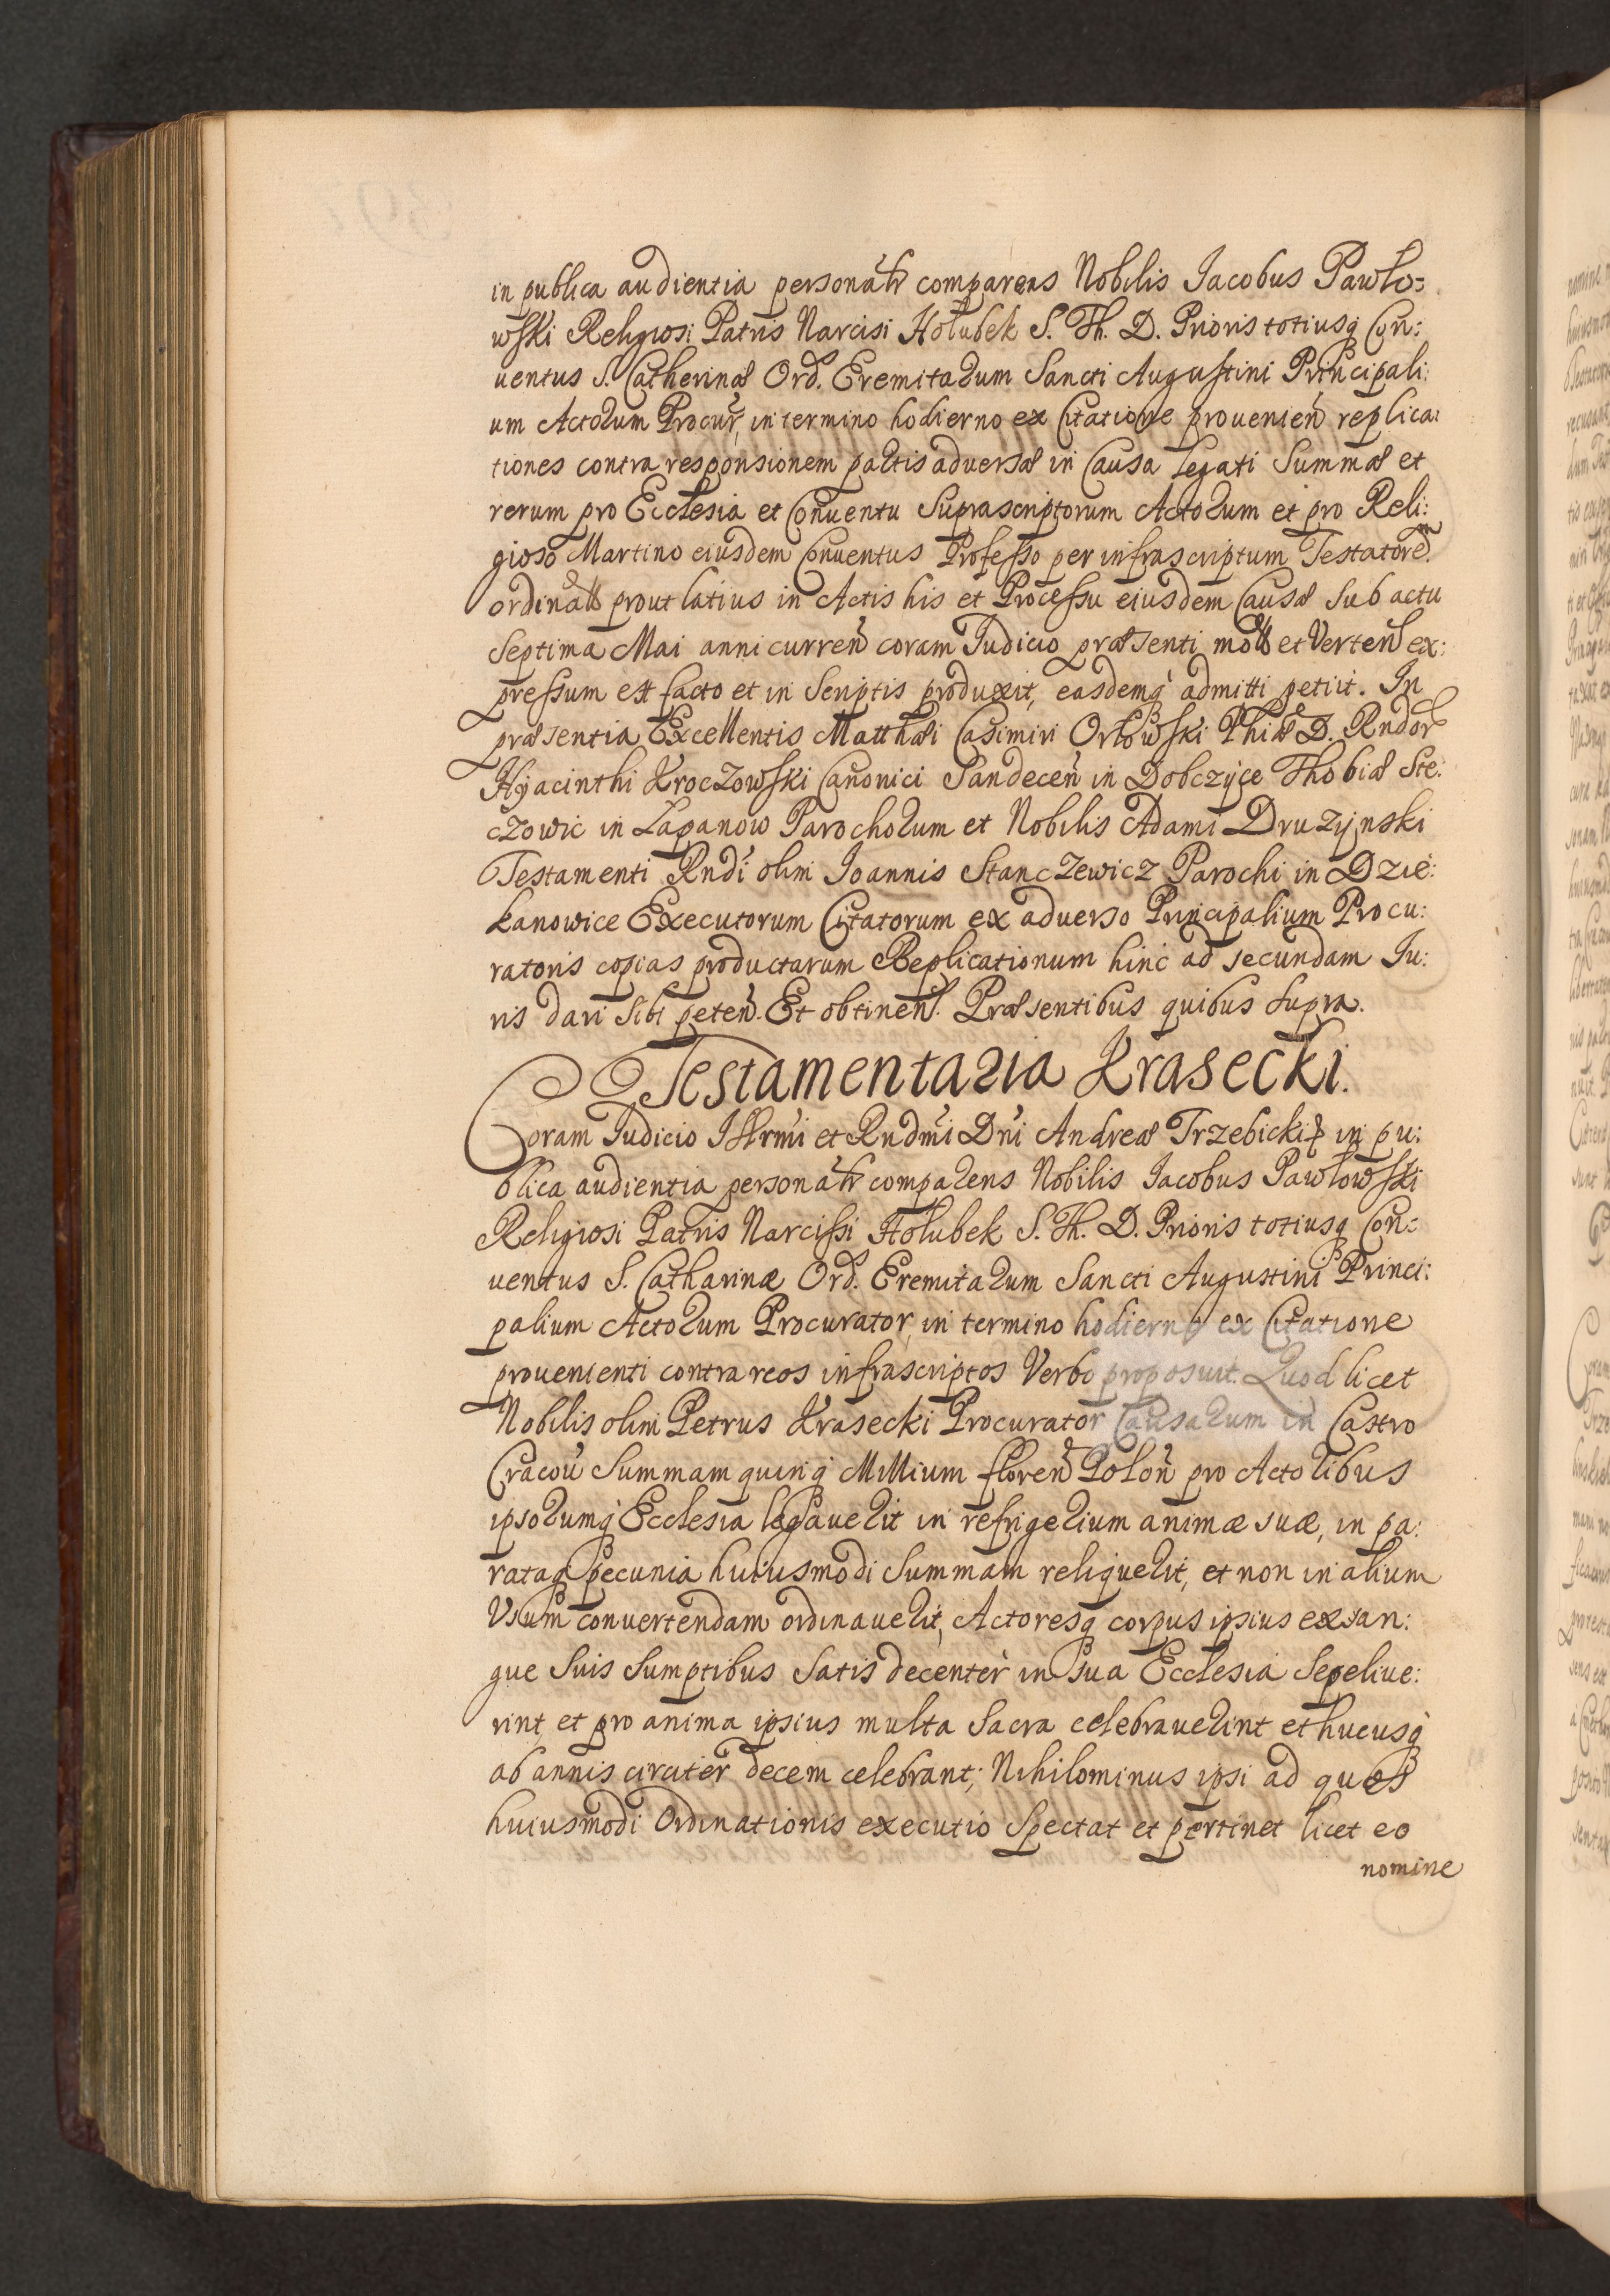 in publica audientia personałr comparens Nobilis Jacobus Pawło=
wski Religiosi Patris Narcisi Hołubek S. Th. D. Prioris totiusq Con:
uentus S. Catherinæ Ord. Eremitarum Sancti Augustini Principali:
um Actorum Procur, in termino hodierno ex Citatione prouenień replica:
tiones contra responsionem partis adversæ in Causa legati Summæ et
rerum pro Ecclesia et Conuentu Suprascriptorum Actorum et pro Reli:
gioso Martino eiusdem Conuentus Professo per infrascriptum Testatorem
ordinał prout latius in Actis his et Processu eiusdem Causæ sub actu
septima Mai anni curreń coram Judicio præsenti et Verteń ex:
pressum est facto et in Scriptis produxit, easdemq admitti petiit. In
præsentia Excellentis Matthæi Casimiri Orłowski Phiæ D. Rndor
Hyacinthi Kroczowski Canonici Sandeceń in Dobczÿce Thobiæ Ste:
czowic in Łapanow Parochorum et Nobilis Adami Druzÿnski
Testamenti Rndi olim Joannis Stanczewicz Parochi in Dzie:
kanowice Executorum Citatorum ex aduerso Principalium Procu:
ratoris copias productarum Replicationum hinc ad secundam Ju:
ris dari sibi peteń. Et obtineń. Præsentibus quibus supra.
Testamentaria Krasecki.
Coram Judicio Illrmi et Rndmi Dni Andreæ Trzebicki in pu:
blica audientia personałr comparens Nobilis Jacobus Pawłowski
Religiosi Patris Narcissi Hołubek S. Th. D. Prioris totiusq Con=
uentus S. Catharinæ Ord. Eremitarum Sancti Augustini Princi:
palium Actorum Procurator, in termino hodierno ex Citatione
prouenienti contra reos infrascriptos Verbo proposuit. Quod licet
Nobilis olim Petrus Krasecki Procurator Causarum in Castro
Cracoū Summam quinq Millium floreń Poloń pro Actoribus
ipsorumq Ecclesia legauerit in refrigerium animæ suæ, in pa:
rataq pecunia huiusmodi Summam reliquerit, et non in alium
Vsum conuertendam ordinauerit, Actoresq corpus ipsius exsan:
gue suis sumptibus satis decenter in sua Ecclesia sepeliue:
rint, et pro anima ipsius multa Sacra celebrauerint et hucusq
ab annis circiter decem celebrant; Nihilominus ipsi ad quos
huiusmodi Ordinationis executio spectat et pertinet licet eo
nomine